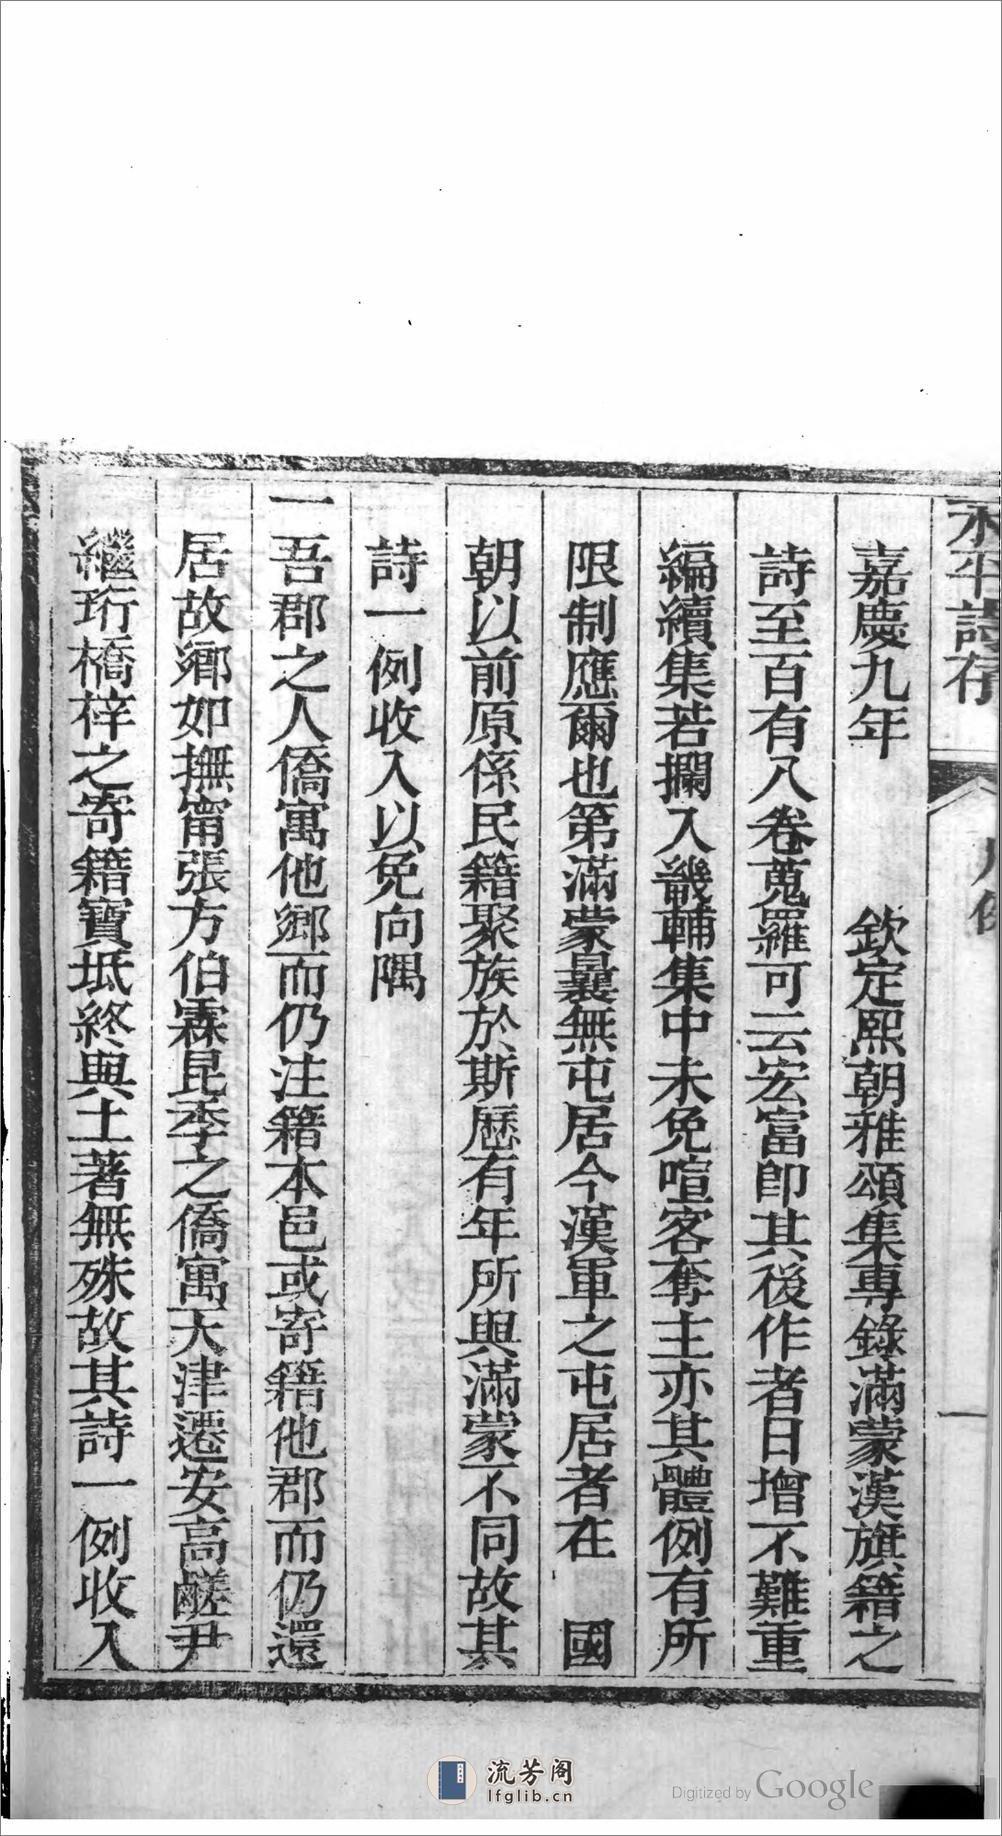 永平詩存
凡例
一
嘉慶九年　欽定熙朝雅頌集專錄滿蒙漢旗籍之
詩至百有八卷蒐羅可云宏富即其後作者日增不難重
編續集若攔入畿輔集中未免喧客奪主亦其體例有所
限制應爾也第滿蒙曩無屯居今漢軍之屯居者在　國
朝以前原係民籍聚族於斯歷有年所與滿蒙不同故其
詩一例收入以免向隅
一吾郡之人僑寓他鄉而仍注籍本邑或寄籍他郡而仍還
居故鄉如撫甯張方伯霖昆季之僑寓天津遷安高鹺尹
繼珩橋梓之寄籍寶坻終與土著無殊故其詩一例收入
流芳阁
lfglib.cn
Digitized by Google